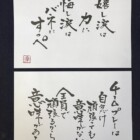 嬉し涙は
力に
悔し涙は
バネに
すっぺ
チームプレー
自分だけ
頑張っても
意味がない
全員で
頑張るから
意味がある